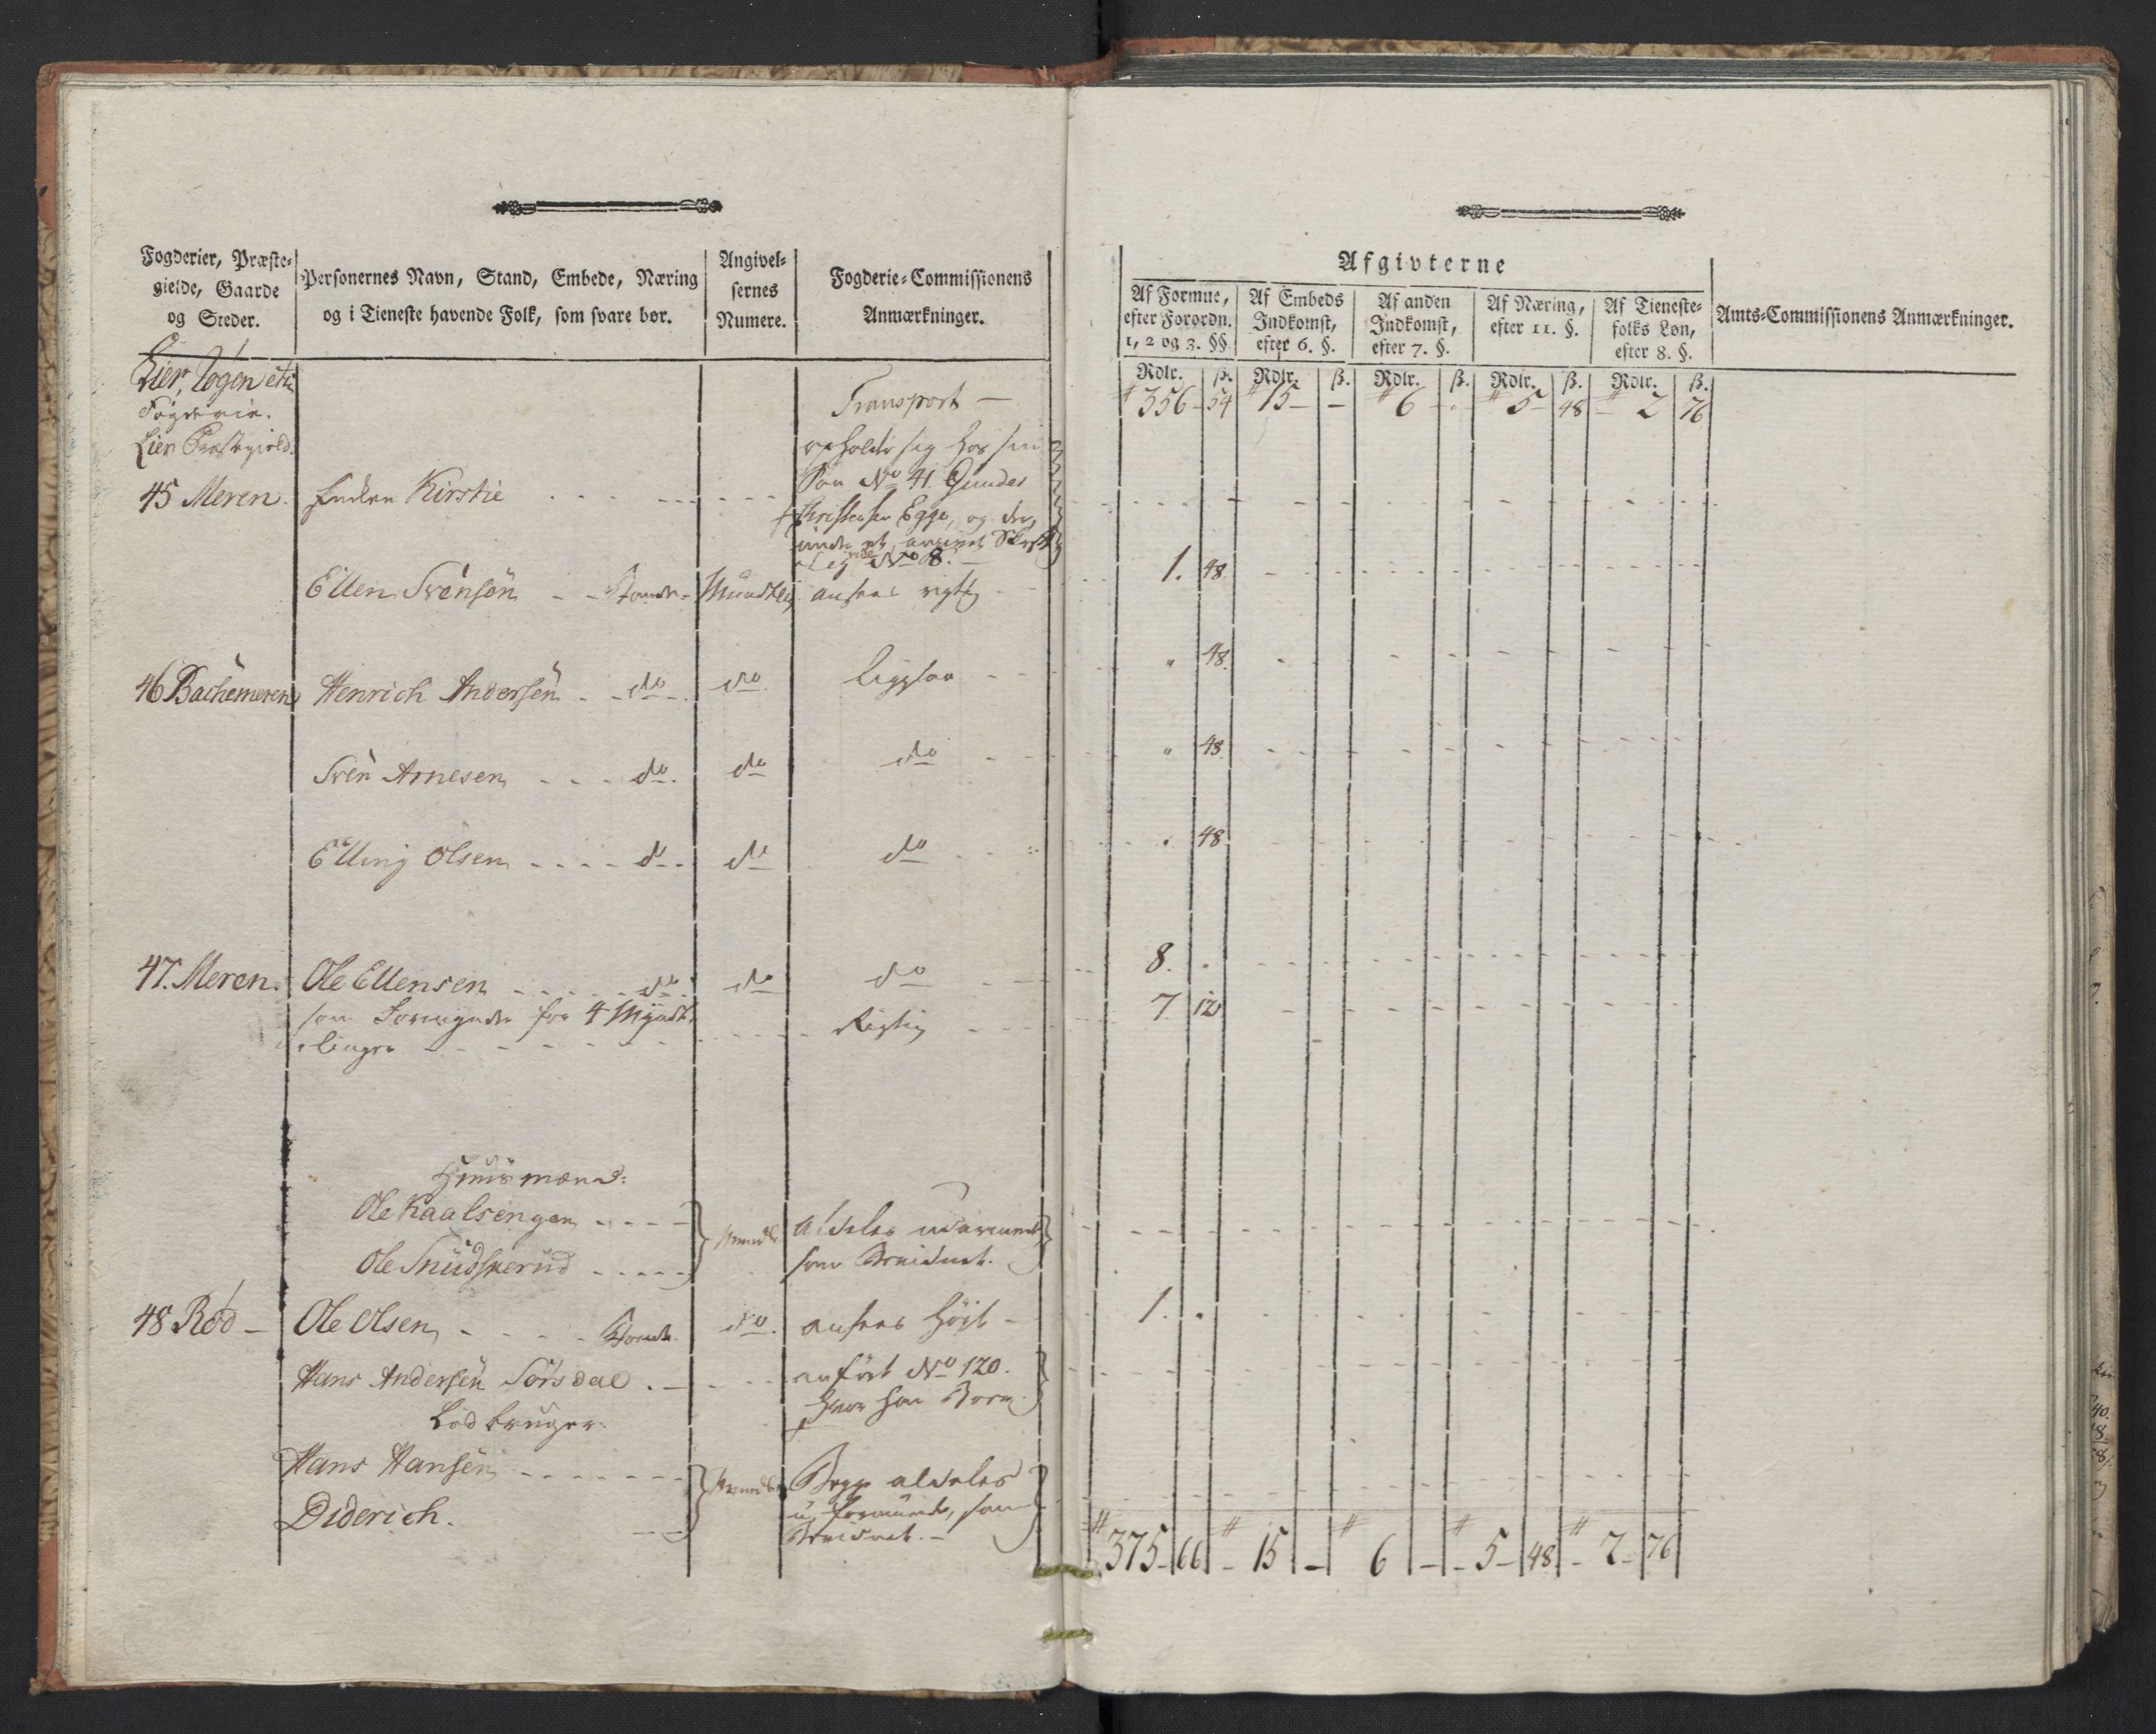 Fogderier, Præste-
gielde, Gaarde
og Steder.
Personernes Navn, Stand, Embede, Næring
og i Tieneste havende Folk, som svare bør.
Angivel-
sernes
Numere.
Fogderie-Commissionens
Anmærkninger.
Lier, Røgen etc
Fogderie.
Lier Præstegield.
Transport —
45 Meren. Enken Kirstie
opholder sig hos sin
Søn No 41. Gunder
Christensen Egge, og der,
Leg No 8. —
Ellen Svensøn - - Bonde - Mundtlig ansees rigtig
46 Bachemeren Henrich Andersen - do do Ligesaa
Sven Arnesen - - - do do do
Elling Olsen - - - - do do do
47. Meren. Ole Ellensen - - - do do do
som Formynder for 4 Mynd-
linger - - - Rigtig
Huusmænd:
Ole Kaalsengen - - - -
Ole Snudskerud - - - - -
Mundtl. aldeles uformuende
som Vnidnet.
48 Rød — Ole Olsen - - - - Bonde do. ansees Højt -
Hans Andersen Sørsdal . — anført No 120.
hvor han Boer
Lodbruger.
Hans Hansen - - - - - - -
Diderich.
Mundtl. Begge aldeles
uformuende, som
Afgivterne
Af Formue,
efter Forordn.
1, 2 og 3. §§.
Af Embeds
Indkomst,
efter 6. §.
Af anden
Indkomst,
efter 7. §.
Af Næring,
efter 11. §.
Af Tieneste-
folks Løn,
efter 8. §.
Amts-Commissionens Anmærkninger.
Rdlr. ß. Rdlr. ß. Rdlr. ß. Rdlr. ß. Rdlr. ß.
356 - 54 15 - - 6 - . 5 - 48 - 2 76
1. 48
" 48
" 48
. 48
8. .
7. 12
1. .
375 - 66 - 15 - 6 - - 5 - 48 - 2 - 76